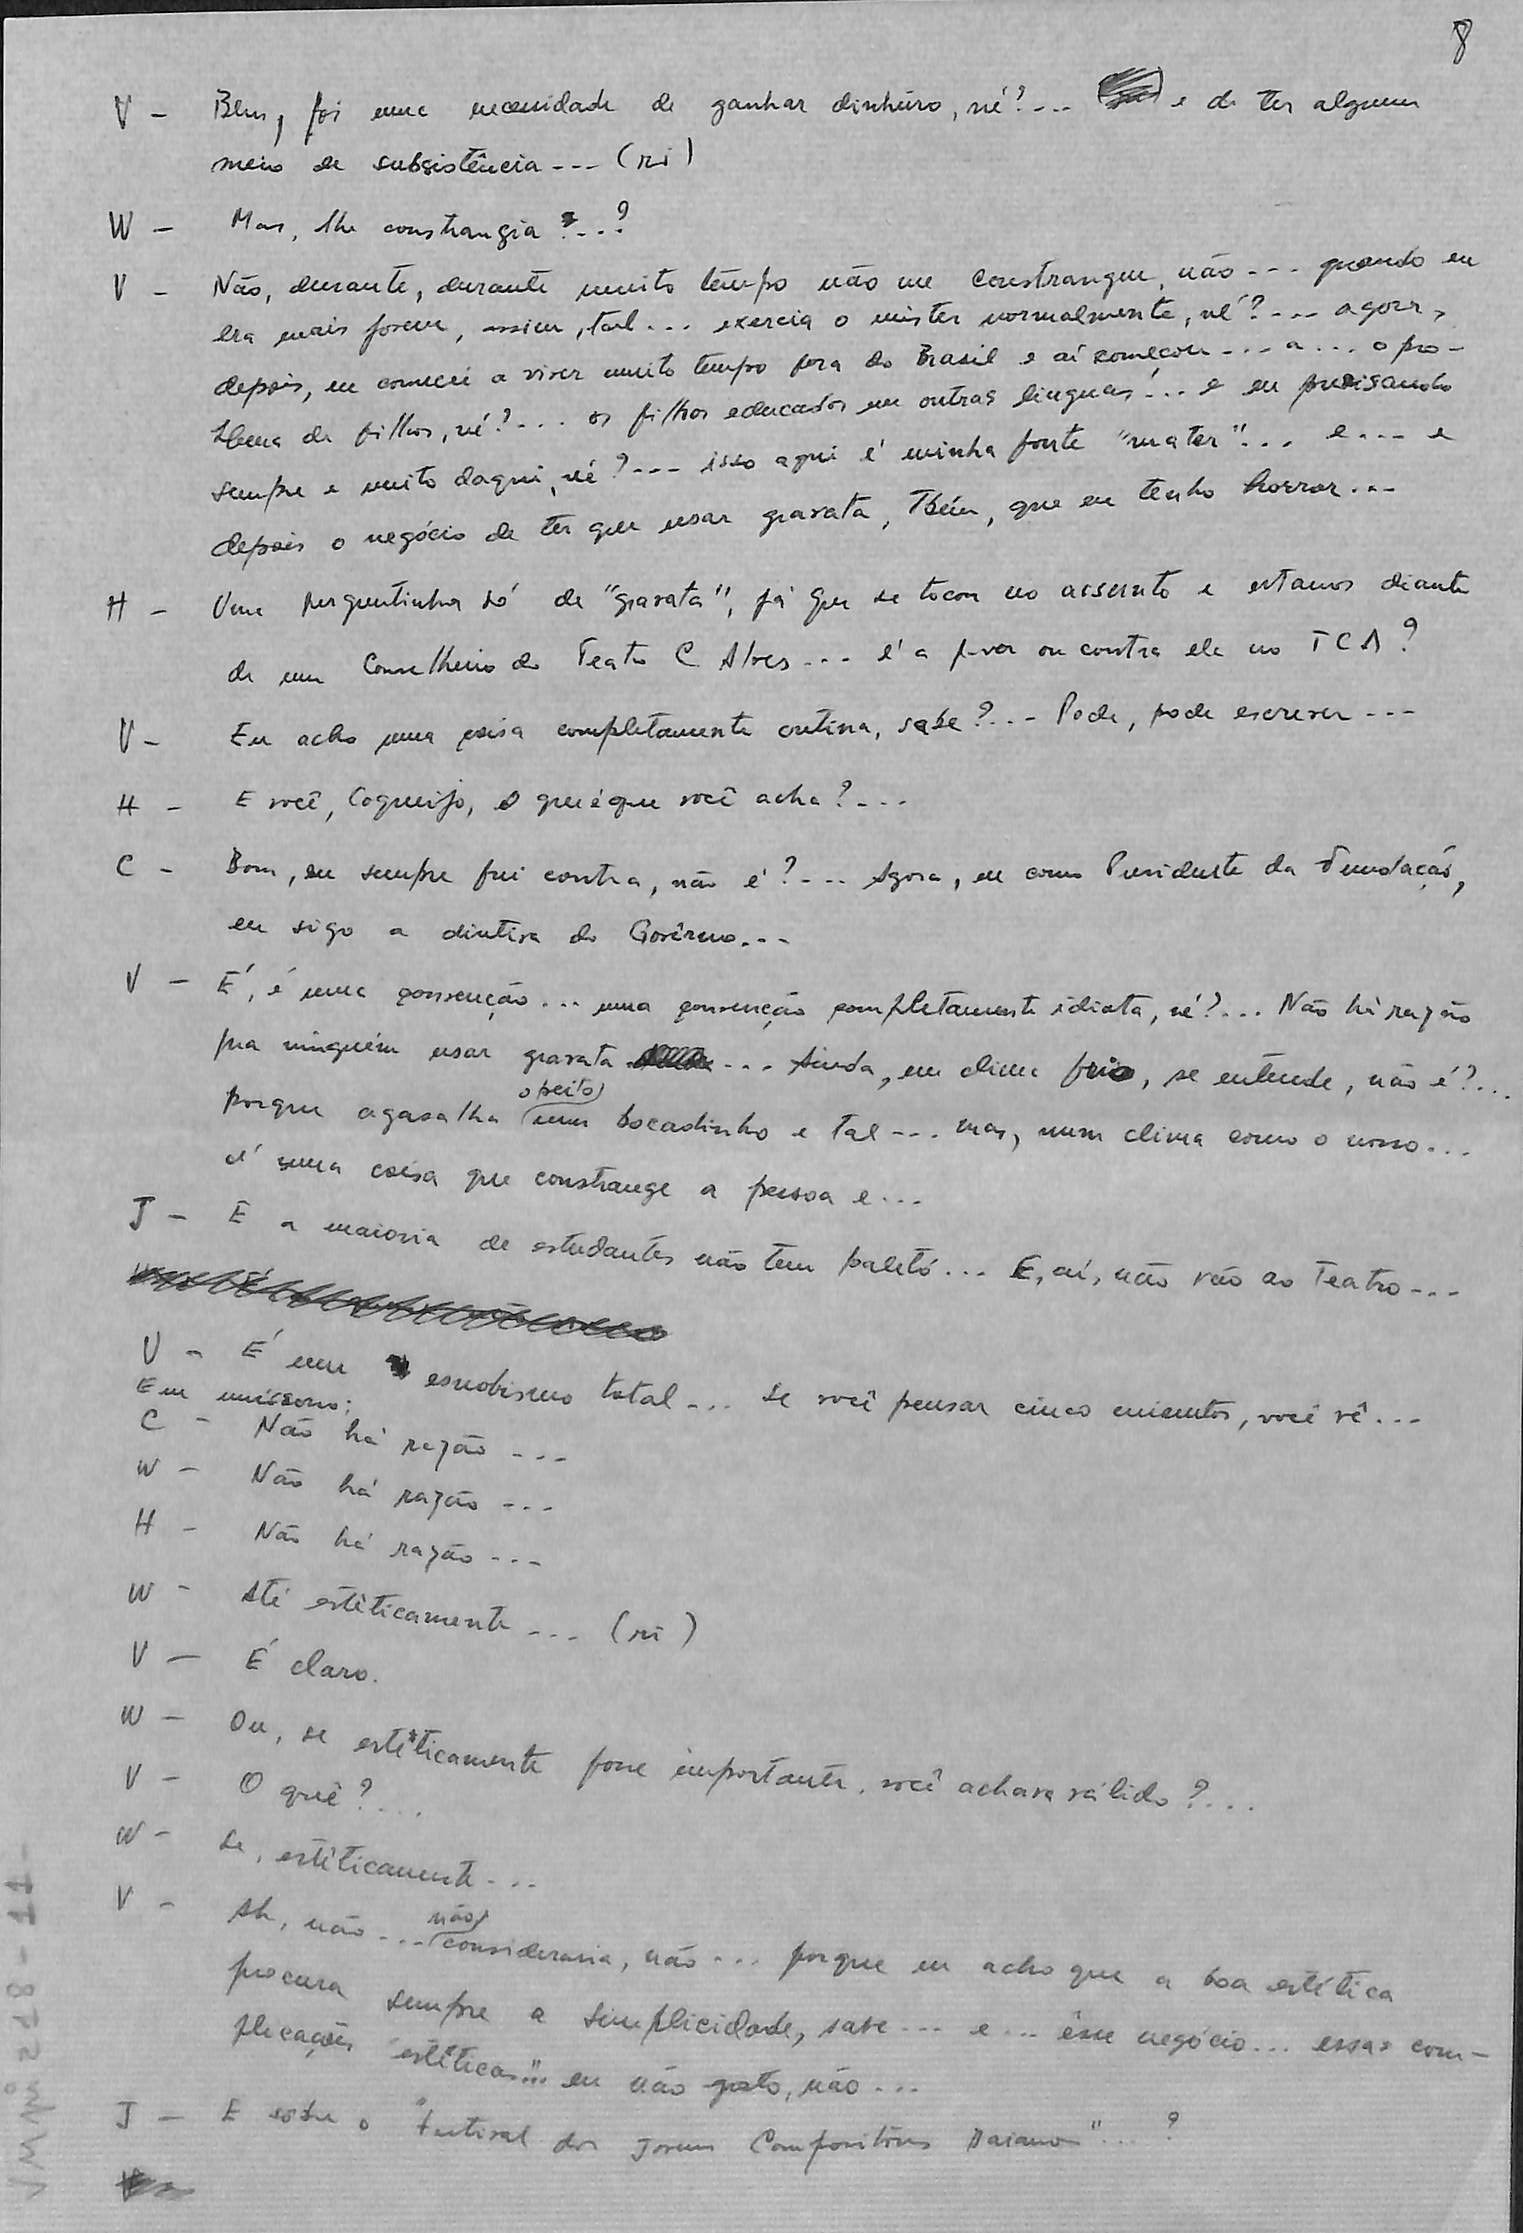 8
V - Bem, foi uma necessidade de ganhar dinheiro, né?... e de ter algum
meio de subsistência... (ri)
W - Mas, lhe constrangia?...?
V - Não, durante, durante muito tempo não me constrangeu, não... quando eu
era mais jovem, assim, tal... exercia o mister normalmente, né?... agora,
depois, eu comecei a viver muito tempo fora do Brasil e aí começou... a... o pro-
blema de filhos, né?... os filhos educados em outras línguas... e eu precisando
sempre e muito daqui, né?... isso aqui é minha fonte "mater"... e... e
depois o negócio de ter que usar gravata, Tbém, que eu tenho horror...
H - Uma perguntinha só de "gravata", já que se tocou no assunto e estamos diante
de um Conselheiro do Teatro C Alves... é a favor ou contra ela no TCA?
V - Eu acho uma coisa completamente cretina, sabe?... Pode, pode escrever...
H - E você, Coqueijo, o que é que você acha?...
C - Bom, eu sempre fui contra, não é?... Agora, eu como Presidente da Fundação,
eu sigo a diretiva do Govêrno...
V - É, é uma convenção... uma convenção completamente idiota, né?... Não há razão
pra ninguém usar gravata... Ainda, em clima frio, se entende, não é?...
porque agasalha o peito um bocadinho e tal... mas, num clima como o nosso...
é uma coisa que constrange a pessoa e...
J - E a maioria de estudantes não tem paletó... E, aí, não vão ao Teatro...
V - É um esnobismo total... Se você pensar cinco minutos, você vê...
Em uníssono:
C - Não há razão...
W - Não há razão...
H - Não há razão...
W - Até estèticamente... (ri)
V - É claro.
W - Ou, se estèticamente fosse importante, você achava válido?...
V - O quê?...
W - Se, estèticamente...
V - Ah, não... não consideraria, não... porque eu acho que a boa estética
procura sempre a simplicidade, sabe... e... êsse negócio... essas com-
plicações "estéticas"... eu não gosto, não...
J - E sobre o "Festival dos Jovens Compositores Baianos"...?
VMMPS78-11-